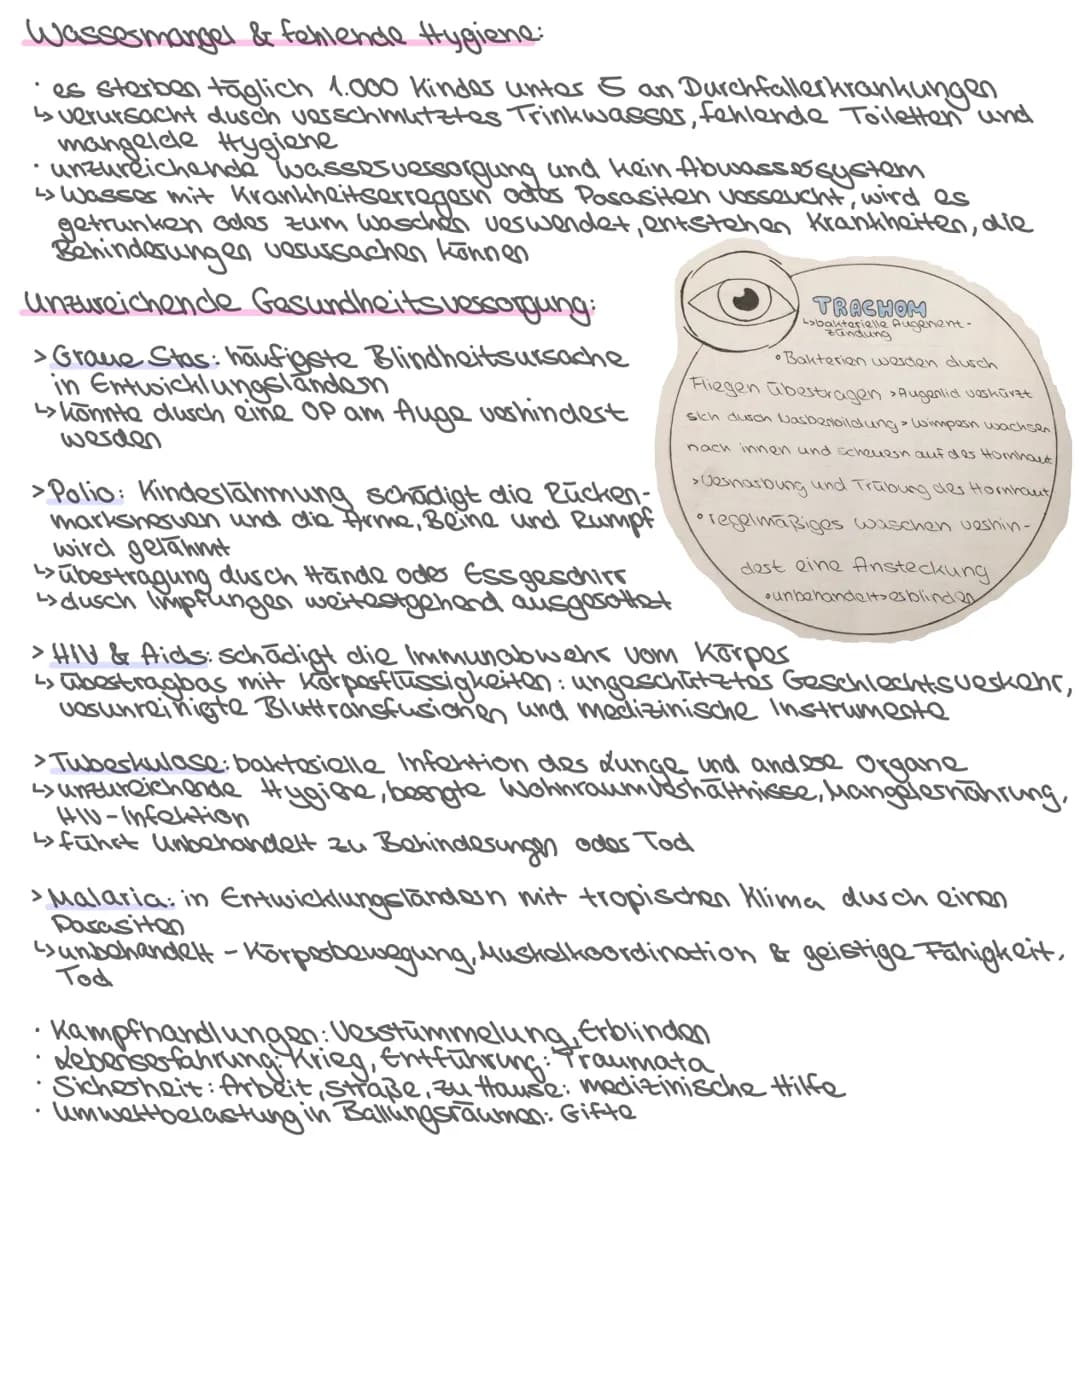 Wassermangel & fehlende Hygiene:
· es sterben täglich 1.000 Kinder unter 5 an Durchfallerkrankungen
↳ verursacht durch verschmutztes Trinkwasser, fehlende Toiletten und
mangelde Hygiene
· unzureichende Wasserversorgung und kein Abwassersystem
↳ Wasser mit Krankheitserregern oder Parasiten verseucht, wird es
getrunken oder zum waschen verwendet, entstehen Krankheiten, die
Behinderungen verursachen können
Unzureichende Gesundheitsversorgung:
> Graue Star: häufigste Blindheitsursache
in Entwicklungsländern
↳ könnte durch eine OP am Auge verhindert
werden
> Polio: Kinderlähmung schädigt die Rücken-
marksnerven und die Arme, Beine und Rumpf
wird gelähmt
↳ übertragung durch Hände oder Essgeschirr
↳ durch Impfungen weitestgehend ausgerottet
TRACHOM
↳ bakterielle Augenent-
zündung
• Bakterien werden durch
Fliegen übertragen > Augenlid verkürzt
sich durch Narbenbildung > Wimpern wachsen
nach innen und scheuern auf der Hornhaut
> Vernarbung und Trübung der Hornhaut
• regelmäßiges waschen verhin-
dert eine Ansteckung
• unbehandelt > erblinden
> HIV & Aids: schädigt die Immunabwehr vom Körper
↳ übertragbar mit Körperflüssigkeiten: ungeschütztes Geschlechtsverkehr,
verunreinigte Bluttransfusionen und medizinische Instrumente
> Tuberkulose: bakterielle Infektion der Lunge und andere Organe
↳ unzureichende Hygiene, beengte Wohnraumverhältnisse, Mangelernährung,
HIV-Infektion
↳ führt Unbehandelt zu Behinderungen oder Tod
> Malaria: in Entwicklungsländern mit tropischen Klima durch einen
Parasiten
↳ unbehandelt - Körperbewegung, Muskelkoordination & geistige Fähigkeit,
Tod
· Kampfhandlungen: Verstümmelung, Erblinden
· Lebenserfahrung: Krieg, Entführung: Traumata
· Sicherheit: Arbeit, Straße, zu Hause: medizinische Hilfe
· Umweltbelastung in Ballungsräumen: Gifte